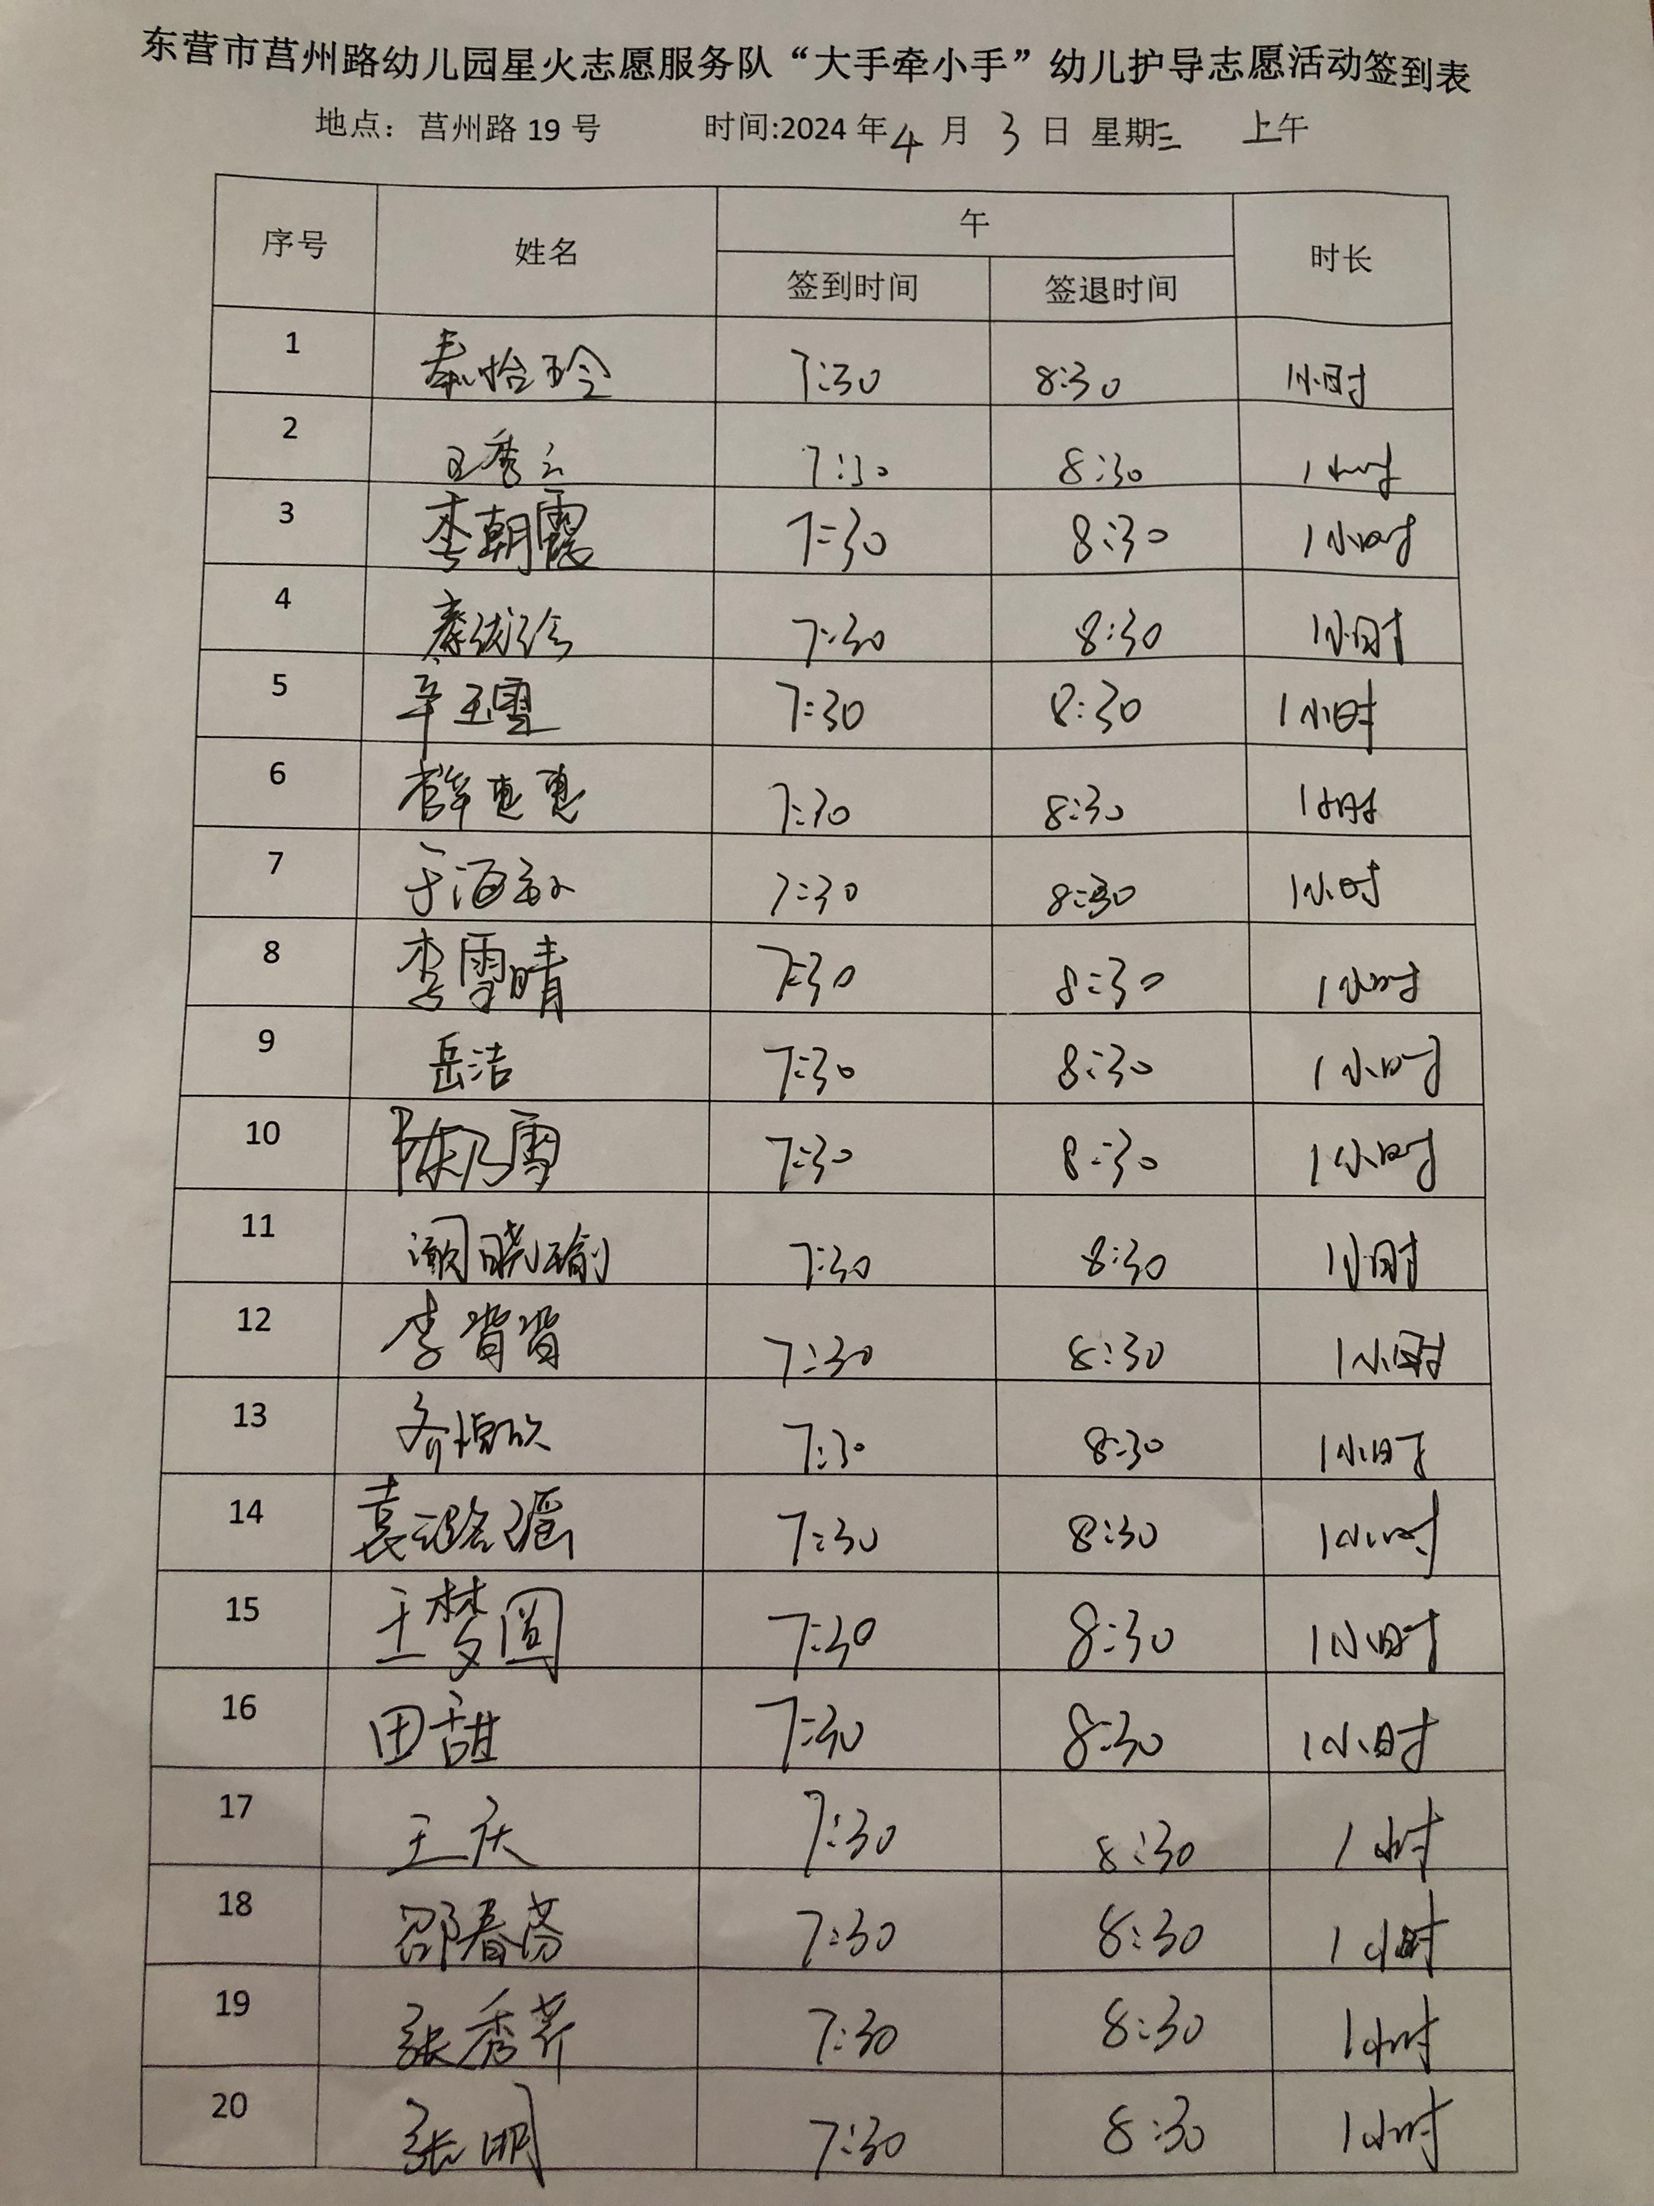 东营市莒州路幼儿园星火志愿服务队“大手牵小手”幼儿护导志愿活动签到表
地点：莒州路 19 号 时间:2024 年 4 月 3 日 星期三 上午
序号 姓名 午 时长
签到时间 签退时间
1 秦怡玲 7:30 8:30 1小时
2 王秀云 7:30 8:30 1小时
3 李朝霞 7:30 8:30 1小时
4 7:30 8:30 1小时
5 辛玉雪 7:30 8:30 1小时
6 薛惠惠 7:30 8:30 1小时
7 于海 7:30 8:30 1小时
8 李雪晴 7:30 8:30 1小时
9 岳洁 7:30 8:30 1小时
10 陈乃雪 7:30 8:30 1小时
11 晓瑜 7:30 8:30 1小时
12 李背背 7:30 8:30 1小时
13 齐 7:30 8:30 1小时
14 袁璐瑶 7:30 8:30 1小时
15 王梦圆 7:30 8:30 1小时
16 田甜 7:30 8:30 1小时
17 王庆 7:30 8:30 1小时
18 邵春 7:30 8:30 1小时
19 张秀芹 7:30 8:30 1小时
20 张明 7:30 8:30 1小时